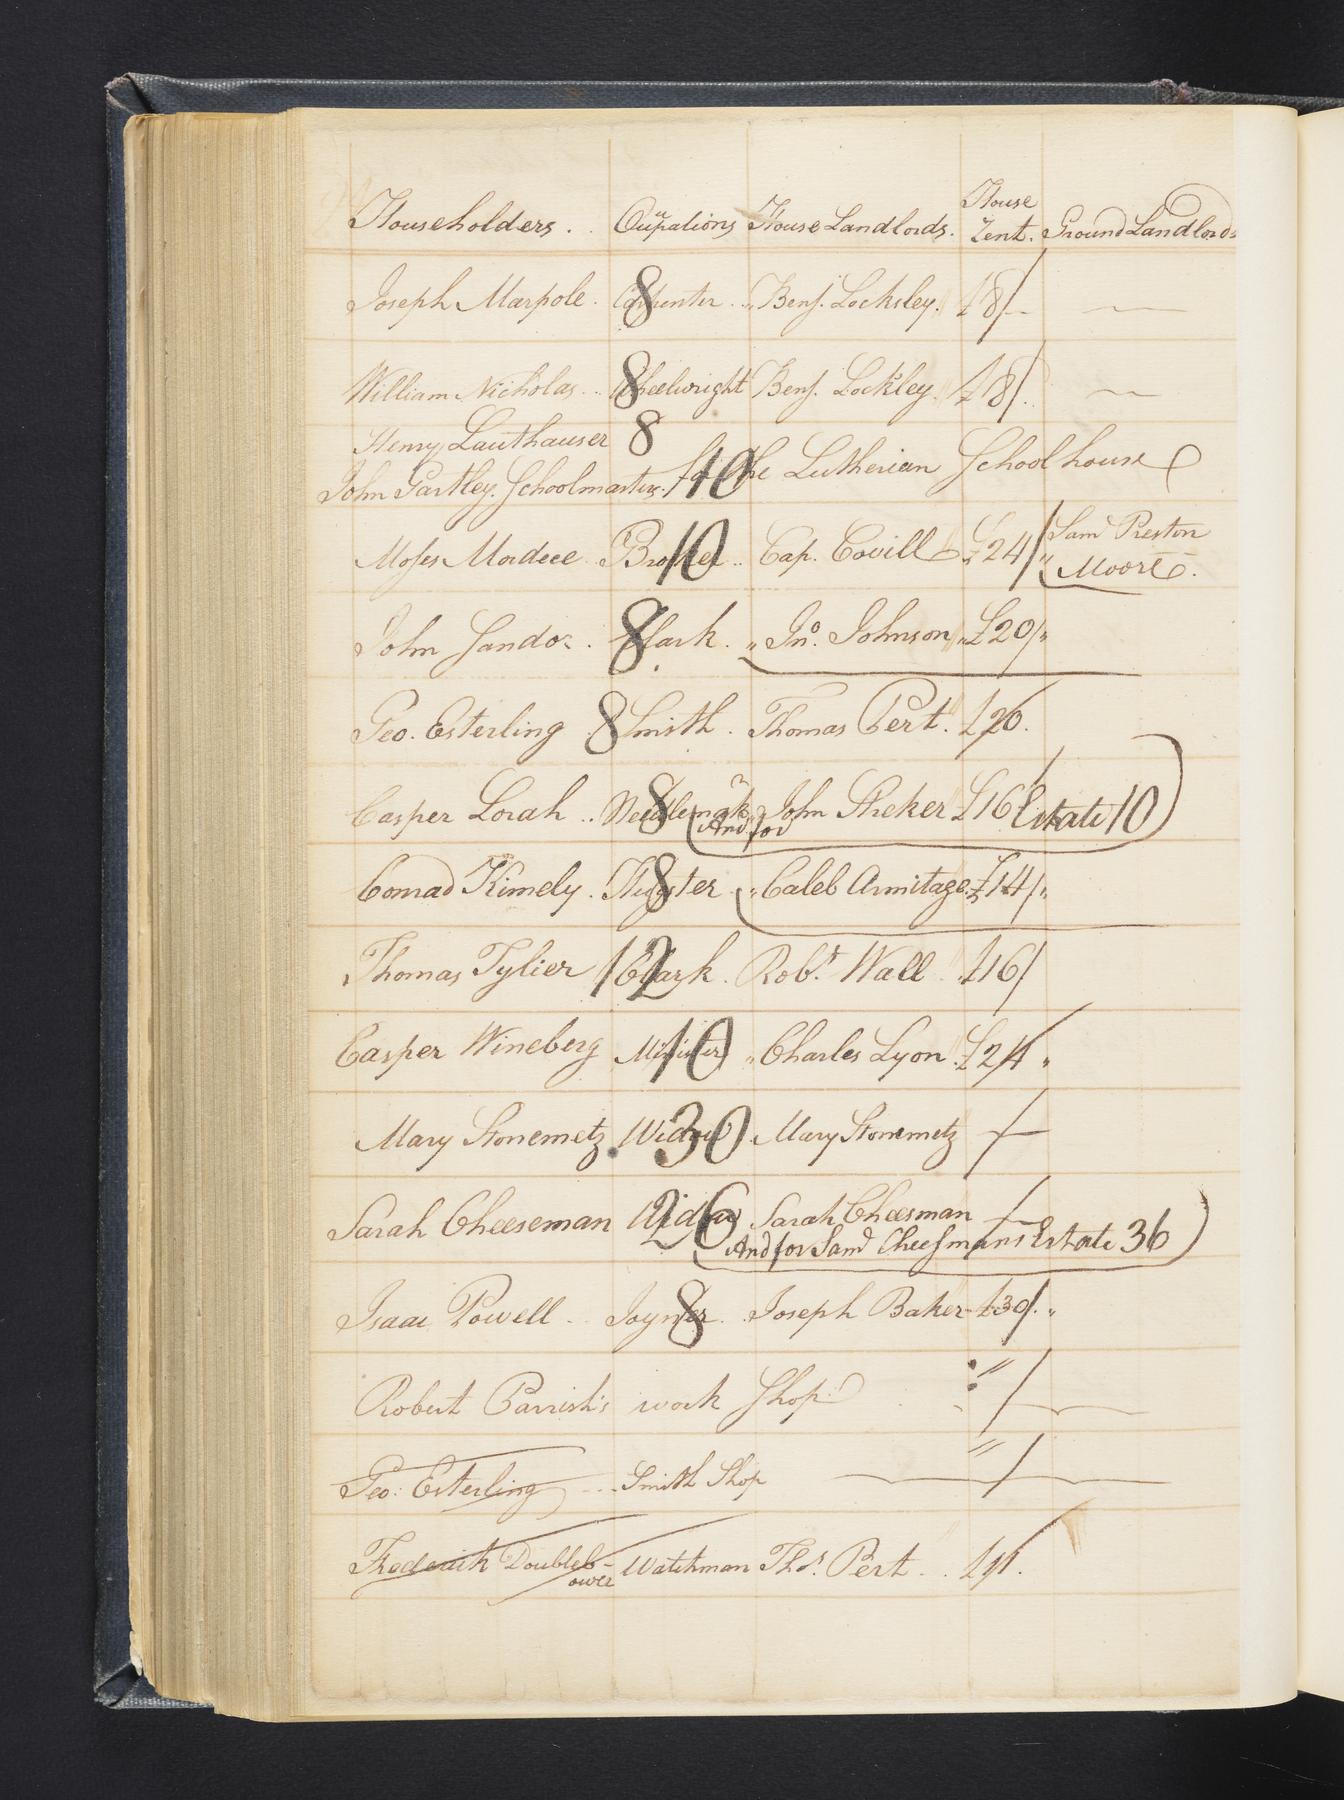 Householders . . Occupations House Landlords. House Rent. Ground Landlords
Joseph Marpole . Carpenter .. Benj. Locksley. £8/- 8
William Nicholas .. Wheelwright Benj. Lockley. £8/. 8
Henry Lauthauser 8
John Gartley. Schoolmaster. for the Lutherian School house 10
Moses Mordece Broker .. Cap. Covill £24/ Saml Preston 10
Moore.
John Sandor . Clark . Jno. Johnson £20/ 8
Geo. Esterling 8 Smith . Thomas Pert. £26.
Casper Lorah .. Needlemakr John Streker £16 8
And for Estate 10
Conrad Kimely . Caleb Armitage. £14/ 8
Thomas Tylier Clark . Robt. Wall £16/ 12
Casper Wineberg Minister Charles Lyon £24 10
Mary Stonemetz Widow . Mary Stonemetz 30
Sarah Cheeseman Widow Sarah Cheesman 26
And for Saml Cheesmans Estate 36
Isaac Powell .. Joyner . Joseph Baker £30/. 8
Robert Parrish's work Shop.
Geo: Esterling ... Smith Shop
Frederick Doubleb- Watchman Thos. Pert ..
ower